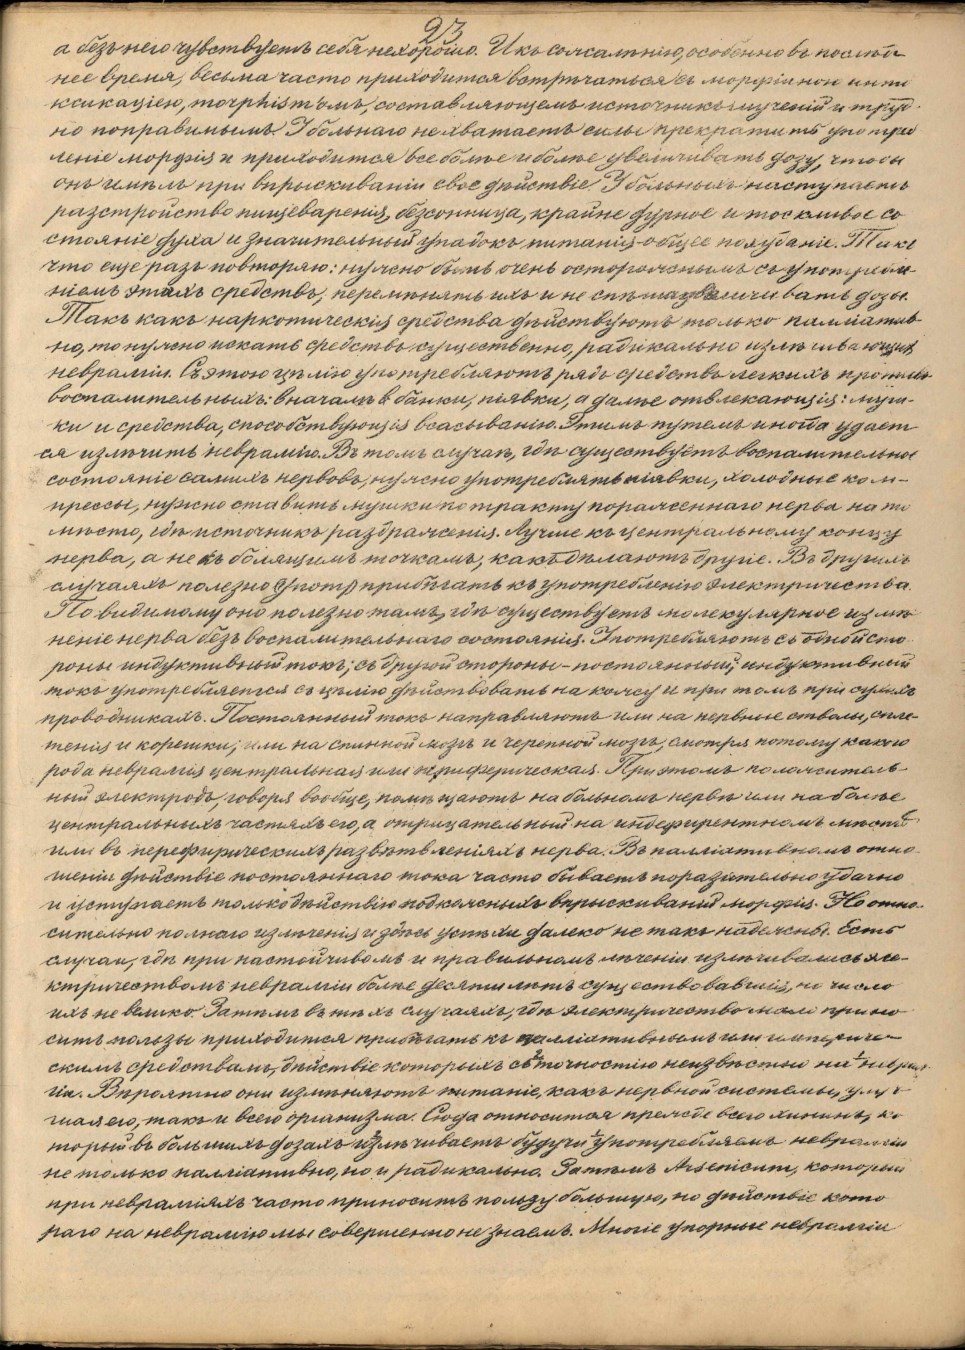 23
а безъ него чувствуетъ себя нехорошо. И къ сожалѣнію, особенно въ послѣд-
нее время, весьма часто приходится встрѣчаться съ морфійною инто
ксикаціею, morphism'омъ, составляющемъ источникъ мученій и труд-
но поправимымъ. У больнаго не хватаетъ силы прекратить употреб
леніе морфія и приходится все болѣе и болѣе увеличивать дозу, чтобы
онъ имѣлъ при впрыскиваніи свое дѣйствіе. У больныхъ наступаетъ
разстройство пищеваренія, безсонница, крайне дурное и тоскливое со
стояніе духа и значительный упадокъ питанія-общее похуданіе. Такъ
что еще разъ повторяю: нужно быть очень осторожнымъ съ употребле-
ніемъ этихъ средствъ, перемѣнять ихъ и не спѣша увеличивать дозы.
Такъ какъ наркотическія средства дѣйствуютъ только палліатив-
но, то нужно искать средствъ существенно, радикально излѣчивающихъ
невралгіи. Съ этою цѣлію употребляютъ рядъ средствъ легкихъ противо
воспалительныхъ: вначалѣ банки, піявки, а далѣе отвлекающія: муш-
ки и средства, способствующія всасыванію. Этимъ путемъ иногда удает
ся излѣчить невралгію. Въ томъ случаѣ, гдѣ существуетъ воспалительное
состояніе самихъ нервовъ, нужно употреблять піявки, холодные ком-
прессы, нужно ставить мушки по тракту пораженнаго нерва на то
мѣсто, гдѣ источникъ раздраженія. Лучше къ центральному концу
нерва, а не къ болящимъ точкамъ, какъ дѣлаютъ другіе. Въ другихъ
случаяхъ полезно (употр) прибѣгать къ употребленію электричества.
По видимому оно полезно тамъ, гдѣ существуетъ молекулярное измѣ
неніе нерва безъ воспалительнаго состоянія. Употребляютъ съ одной сто
роны индуктивный токъ, съ другой стороны - постоянный; индуктивный
токъ употребляется съ цѣлію дѣйствовать на кожу и при томъ при сухихъ
проводникахъ. Постоянный токъ направляютъ или на нервные стволы, спле-
тенія и корешки, или на спинной мозгъ и черепной мозгъ, смотря потому какого
рода невралгія центральная или периферическая. При этомъ положитель-
ный электродъ, говоря вообще, помѣщаютъ на больномъ нервѣ или на болѣе
центральныхъ частяхъ его, а отрицательный на индеферентномъ мѣстѣ
или въ переферическихъ развѣтвленіяхъ нерва. Въ палліативномъ отно-
шеніи дѣйствіе постояннаго тока часто бываетъ поразительно удачно
и уступаетъ только дѣйствію подкожныхъ впрыскиваній морфія. Но отно-
сительно полнаго излѣченія и здѣсь успѣхи далеко не такъ надежны. Есть
случаи, гдѣ при настойчивомъ и правильномъ лѣченіи излѣчивались эле-
ктричествомъ невралгіи болѣе десяти лѣтъ существовавшія, но число
ихъ не велико. Затѣмъ въ тѣхъ случаяхъ, гдѣ электричество мало прино
ситъ пользы приходится прибѣгать къ палліативнымъ или эмпириче-
скимъ средствамъ, дѣйствіе которыхъ съ точностію неизвѣстно на неврал-
гіи. Вѣроятно они измѣняютъ питаніе, какъ нервной системы, улуч
шая его, такъ и всего организма. Сюда относится прежде всего хининъ, ко
торый въ большихъ дозахъ излѣчиваетъ будучи употребляемъ невралгіи
не только палліативно, но и радикально. Затѣмъ Arsenicum, который
при невралгіяхъ часто приноситъ пользу большую, но дѣйствіе кото
раго на невралгію мы совершенно не знаемъ. Многіе упорные невралгіи